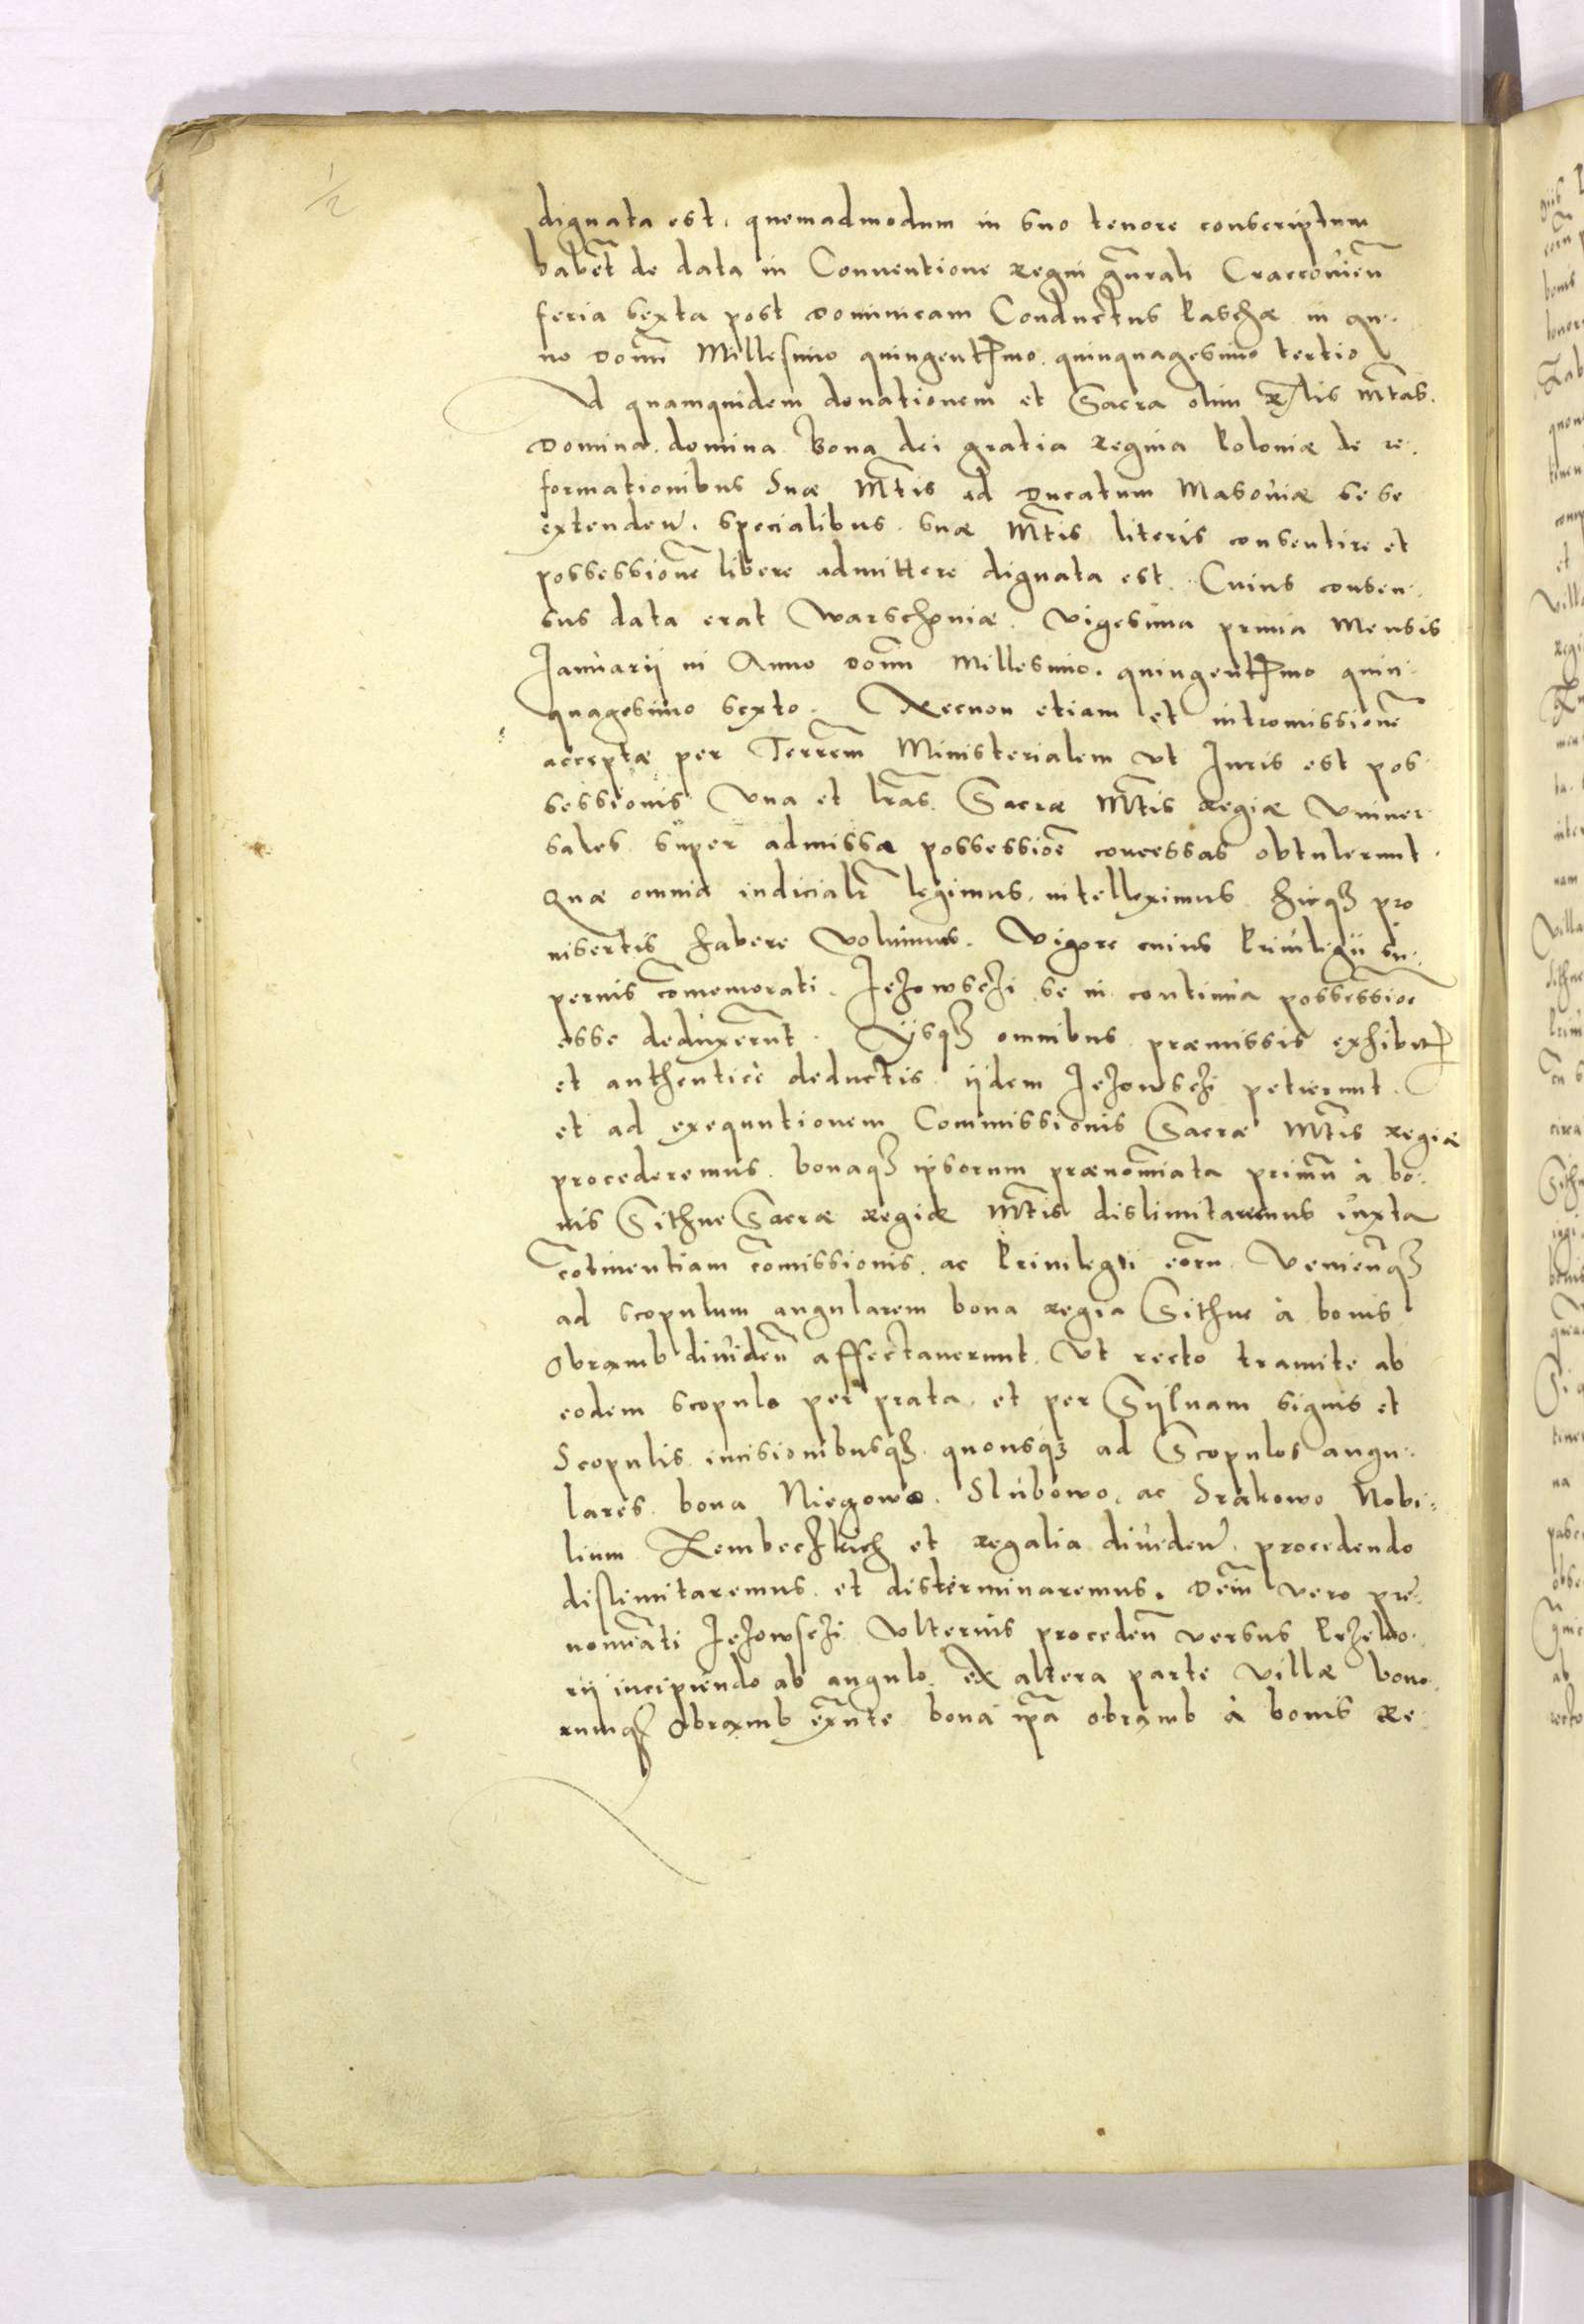 1/2
dignata est, quemadmodum in suo tenore conscriptum
habet̃ de data in Conuentione regni gn̄rali Cracouien̄
feria sexta post Dominicam Conductus Paschæ in an-
no Domī Millesimo quingentmo quinquagesimo tertio
Ad quamquidem donationem et Sacra olim Rlis Mtãs.
Domina domina Bona dei gratia Regina Poloniæ de re-
formationibus Suæ Mtĩs ad Ducatum Masouiæ se se
extendeñ. specialibus suæ Mtĩs literis consentire et
possessionẽ libere admittere dignata est. Cuius consen-
sus data erat Warschouiæ. Vigesima prima Mensis
Januarij in Anno Domī Millesimo. quingentmo quin-
quagesimo sexto. Necnon etiam et intromissionẽ
acceptæ per Terrẽm Ministerialem vt Iuris est pos-
sessionis Vna et lrãs Sacræ Mtĩs Regiæ Vniuer-
sales super admissa possessiõe concessas obtulerunt.
Quæ omnia iudicialr̃ legimus, intelleximus hicq3 pro
insertis habere volumus. Vigore cuius Priuilegii su-
perius cõmemorati. Jezowsczi se in continua possessiõe
esse deduxerũnt. Ijsq3 omnibus præmissis exhibit
et authenticè deductis ijdem Jezowsczi petierunt.
et ad exequutionem Commissionis Sacræ Mtĩs Regiæ
procederemus. bonaq3 ipsorum prænomĩata primũ à bo-
nis Sithne Sacræ Regiæ Mtĩs dislimitaremus iuxta
cõtinentiam cõmissionis. ac Priuilegii eorũ. Venienq̃3
ad scopulum angularem bona Regia Sithne à bonis
Obramb diuideñ affectauerunt. Vt recto tramite ab
eodem scopulo per prata. et per Syluam signis et
Scopulis incisionibusq3. quousq3 ad Scopulos angu-
lares. bona Niegowo. Slubowo, ac Srakowo Nobi-
lium Rembeczkich et regalia diuideñ. procedendo
dislimitaremus et disterminaremus. Deĩn vero prę-
nomĩati Jezowsczi vlterius procedeñ versus
rij incipiendo ab angulo. ex altera parte Villæ bono-
rumq3 Obramb bona ip̃a Obramb à bonis Re-